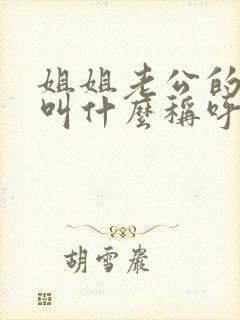 姐姐老公的
叫什麼稱呼
胡雪巖